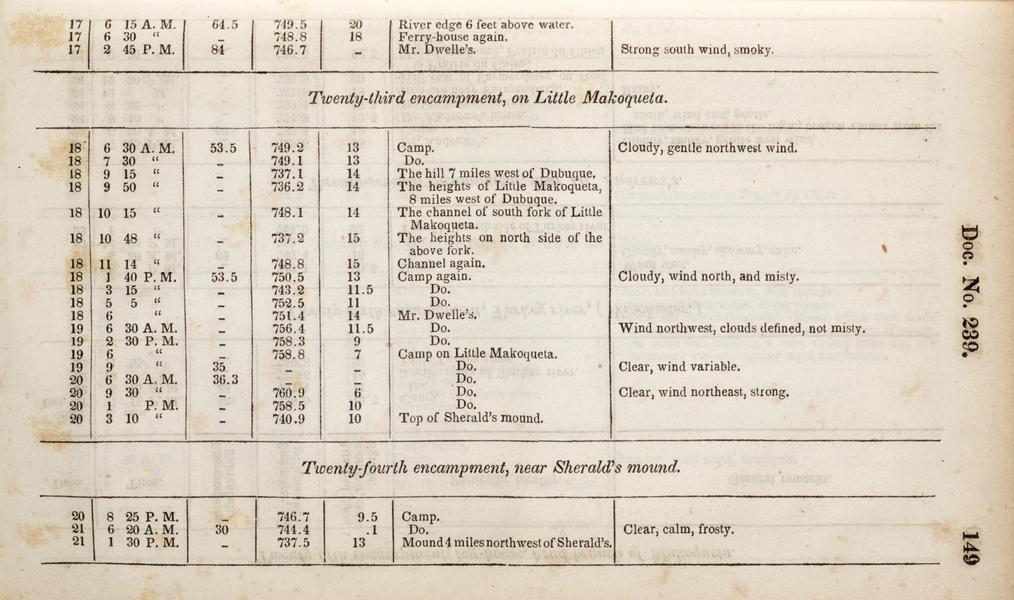 17 6 15 A. M. 64.5 749.5 20 River edge 6 feet above water.
17 6 30 “ – 748.8 18 Ferry-house again.
17 2 45 P. M. 84 746.7 – Mr. Dwelle's. Strong south wind, smoky.
Twenty-third encampment, on Little Makoqueta.
18 6 30 A. M. 53.5 749.2 13 Camp. Cloudy, gentle northwest wind.
18 7 30 “ – 749.1 13 Do.
18 9 15 “ – 737.1 14 The hill 7 miles west of Dubuque.
18 9 50 “ – 736.2 14 The heights of Little Makoqueta,
8 miles west of Dubuque.
18 10 15 “ – 748.1 14 The channel of south fork of Little
Makoqueta.
18 10 48 “ – 737.2 15 The heights on north side of the
above fork.
18 11 14 “ – 748.8 15 Channel again.
18 1 40 P. M. 53.5 750.5 13 Camp again. Cloudy, wind north, and misty.
18 3 15 “ – 743.2 11.5 Do.
18 5 5 “ – 752.5 11 Do.
18 6 “ – 751.4 14 Mr. Dwelle's.
19 6 30 A. M. – 756.4 11.5 Do. Wind northwest, clouds defined, not misty.
19 2 30 P. M. – 758.3 9 Do.
19 6 “ – 758.8 7 Camp on Little Makoqueta.
19 9 “ 35 – – Do. Clear, wind variable.
20 6 30 A. M. 36.3 – – Do.
20 9 30 “ – 760.9 6 Do. Clear, wind northeast, strong.
20 1 P. M. – 758.5 10 Do.
20 3 10 “ – 740.9 10 Top of Sherald's mound.
Twenty-fourth encampment, near Sherald's mound.
20 8 25 P. M. – 746.7 9.5 Camp.
21 6 20 A. M. 30 744.4 .1 Do. Clear, calm, frosty.
21 1 30 P. M. – 737.5 13 Mound 4 miles northwest of Sherald's.
Doc. No. 239.
149